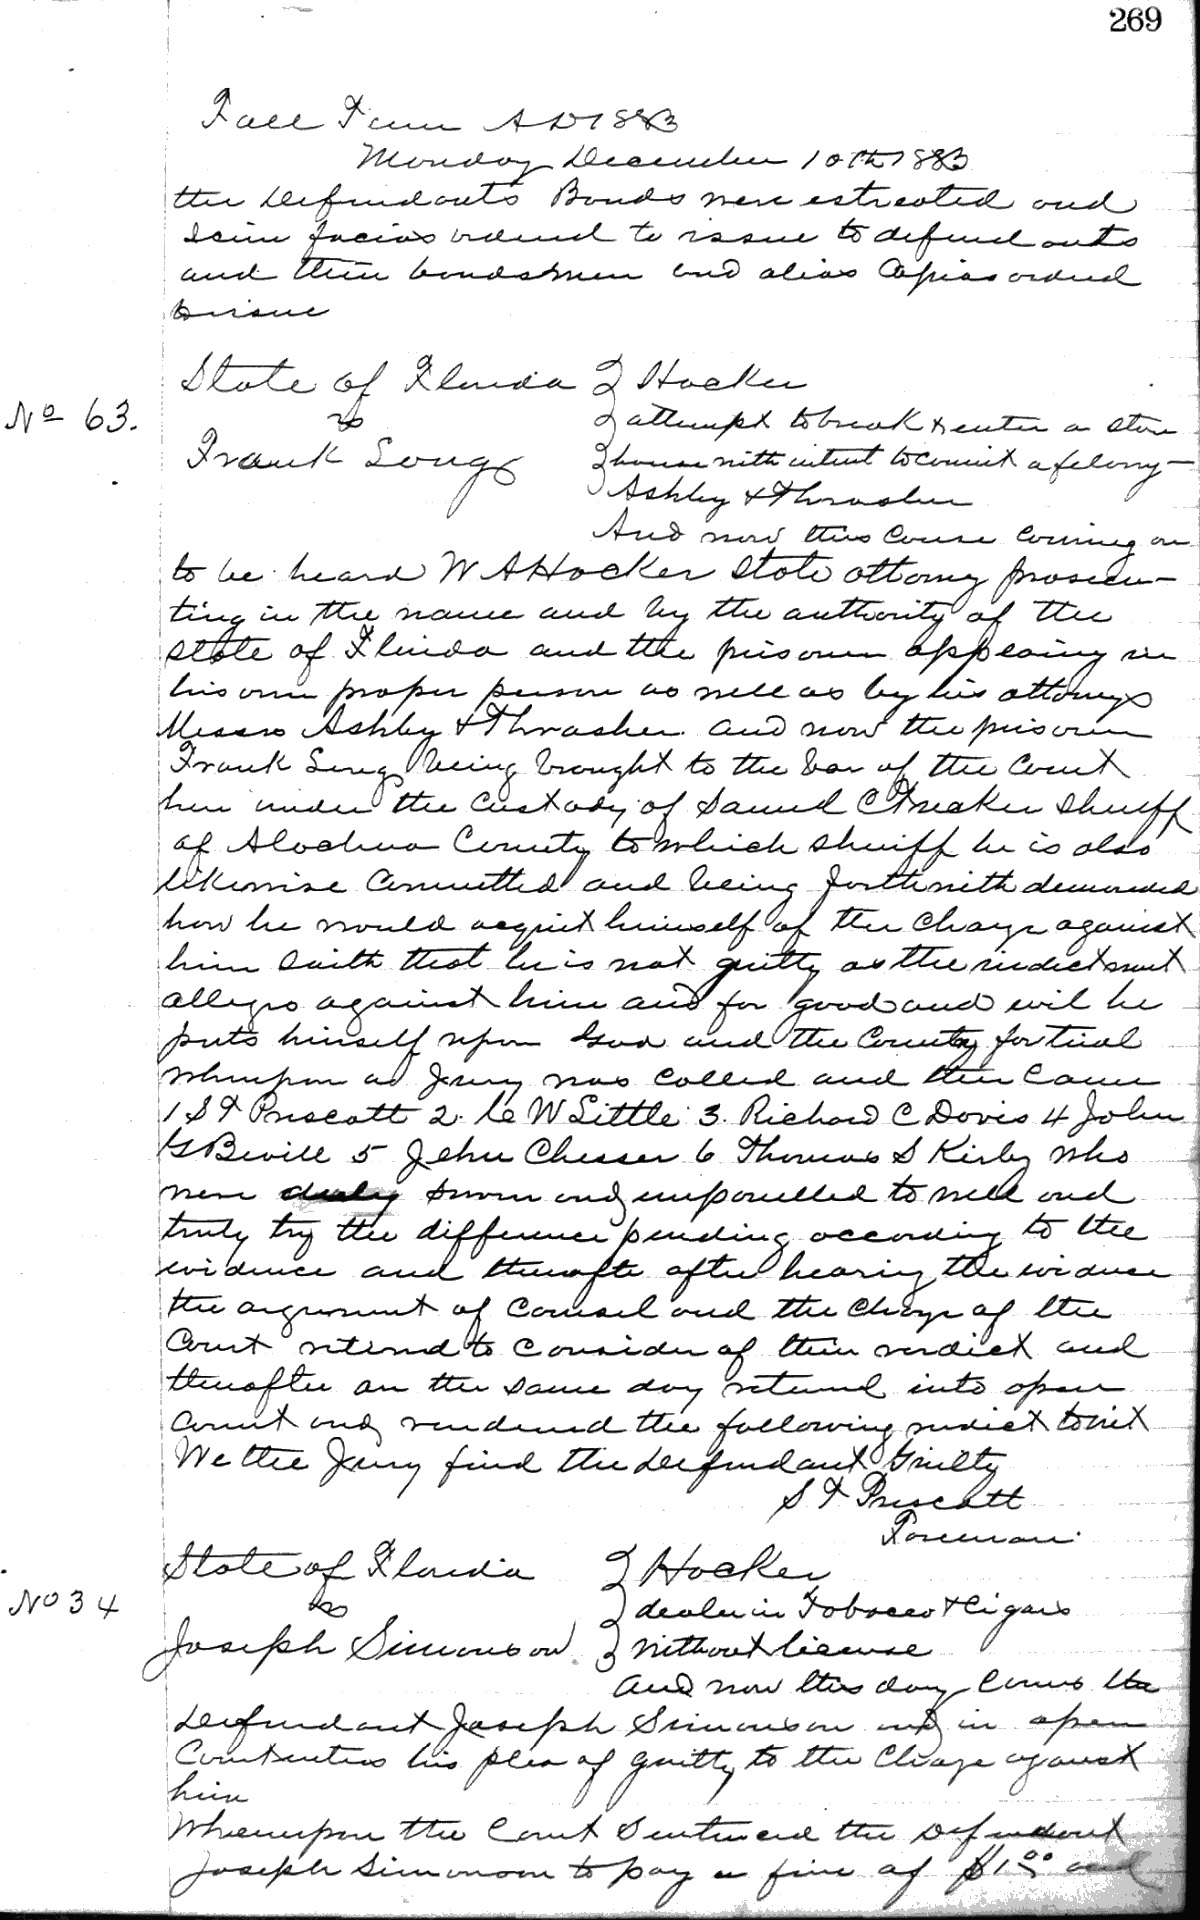 269
Fall Term A D 1883
Monday December 10th 1883
the Defendants Bonds were estreated and
Scire facias ordered to issue to defendants
and their bondsmen and alias Capias ordered
to issue
State of Florida } Hocker
No 63.
vs } attempt to break & enter a store
Frank Long } house with intent to comit a felony—
Ashby & Thrasher
And now this Cause Coming on
to be heard W A Hocker State attorny prosecu-
ting in the name and by the authority of the
State of Florida and the prisoner appearing in
his own proper person as well as by his attorneys
Messrs Ashby & Thrasher and now the prisoner
Frank Long being brought to the bar of the Court
here under the Custody of Samuel C Tucker Sheriff
of Alachua County to which sheriff he is also
likewise Committed and being forthwith demanded
how he would acquit himself of the Charge against
him Saith that he is not guilty as the indictment
alleges against him and for good and evil he
puts himself upon God and the County for trial
Whereupon a Jury was Called and then Came
1 S T Prescott 2. C W Little 3. Richard C Davis 4 John
G Bevill 5 John Chesser 6 Thomas S Kirby Who
were duly sworn and empanelled to well and
truly try the difference pending according to the
evidence and thereafter after hearing the evidence
the argument of Counsel and the Charge of the
Court retired to Consider of their verdict and
thereafter on the same day returned into open
Court and rendered the following verdict towit
We the Jury find the Defendant Guilty
S T Prescott
Foreman
State of Florida } Hocker
No 34
vs } dealer in Tobacco & Cigars
Joseph Simonson } Without license
And now this day Comes the
Defendant Joseph Simonson and in open
Court enters his plea of guilty to the Charge against
him
Whereupon the Court Sentenced the Defendant
Joseph Simonson to pay a fine of $1.00 and